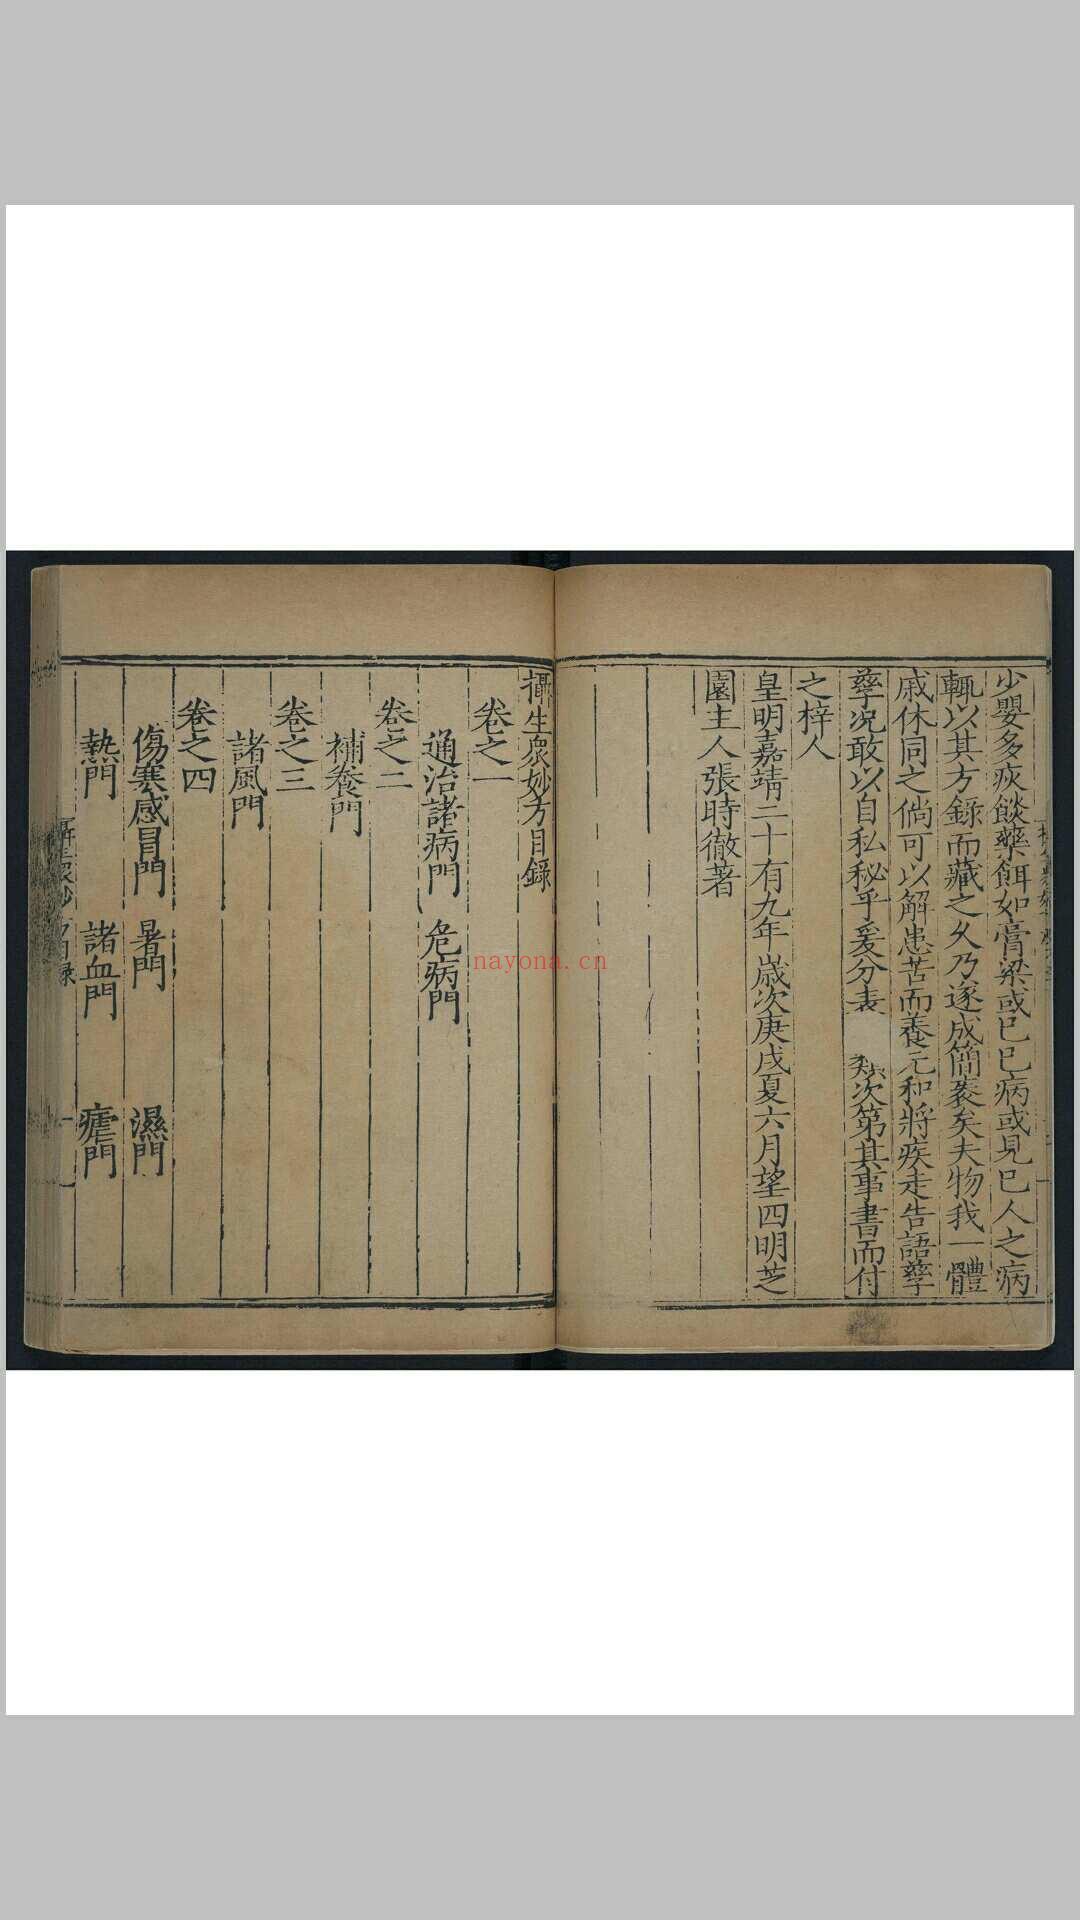 少嬰多疾餤藥餌如膏粱或已巳病或見巳人之病
輒以其方錄而藏之久乃遂成簡袠矣夫物我一體
戚休同之倘可以解患苦而養元和將疾走告語孳
孳况敢以自私秘乎爰分表 類次第其事書而付
之梓人
皇明嘉靖二十有九年歲次庚戌夏六月望四明芝
園主人張時徹著
攝生衆妙方目錄
卷之一
通治諸病門 危病門
卷之二
補養門
卷之三
諸風門
卷之四
傷寒感冒門 暑門 濕門
熱門 諸血門 瘧門
nayona.cn